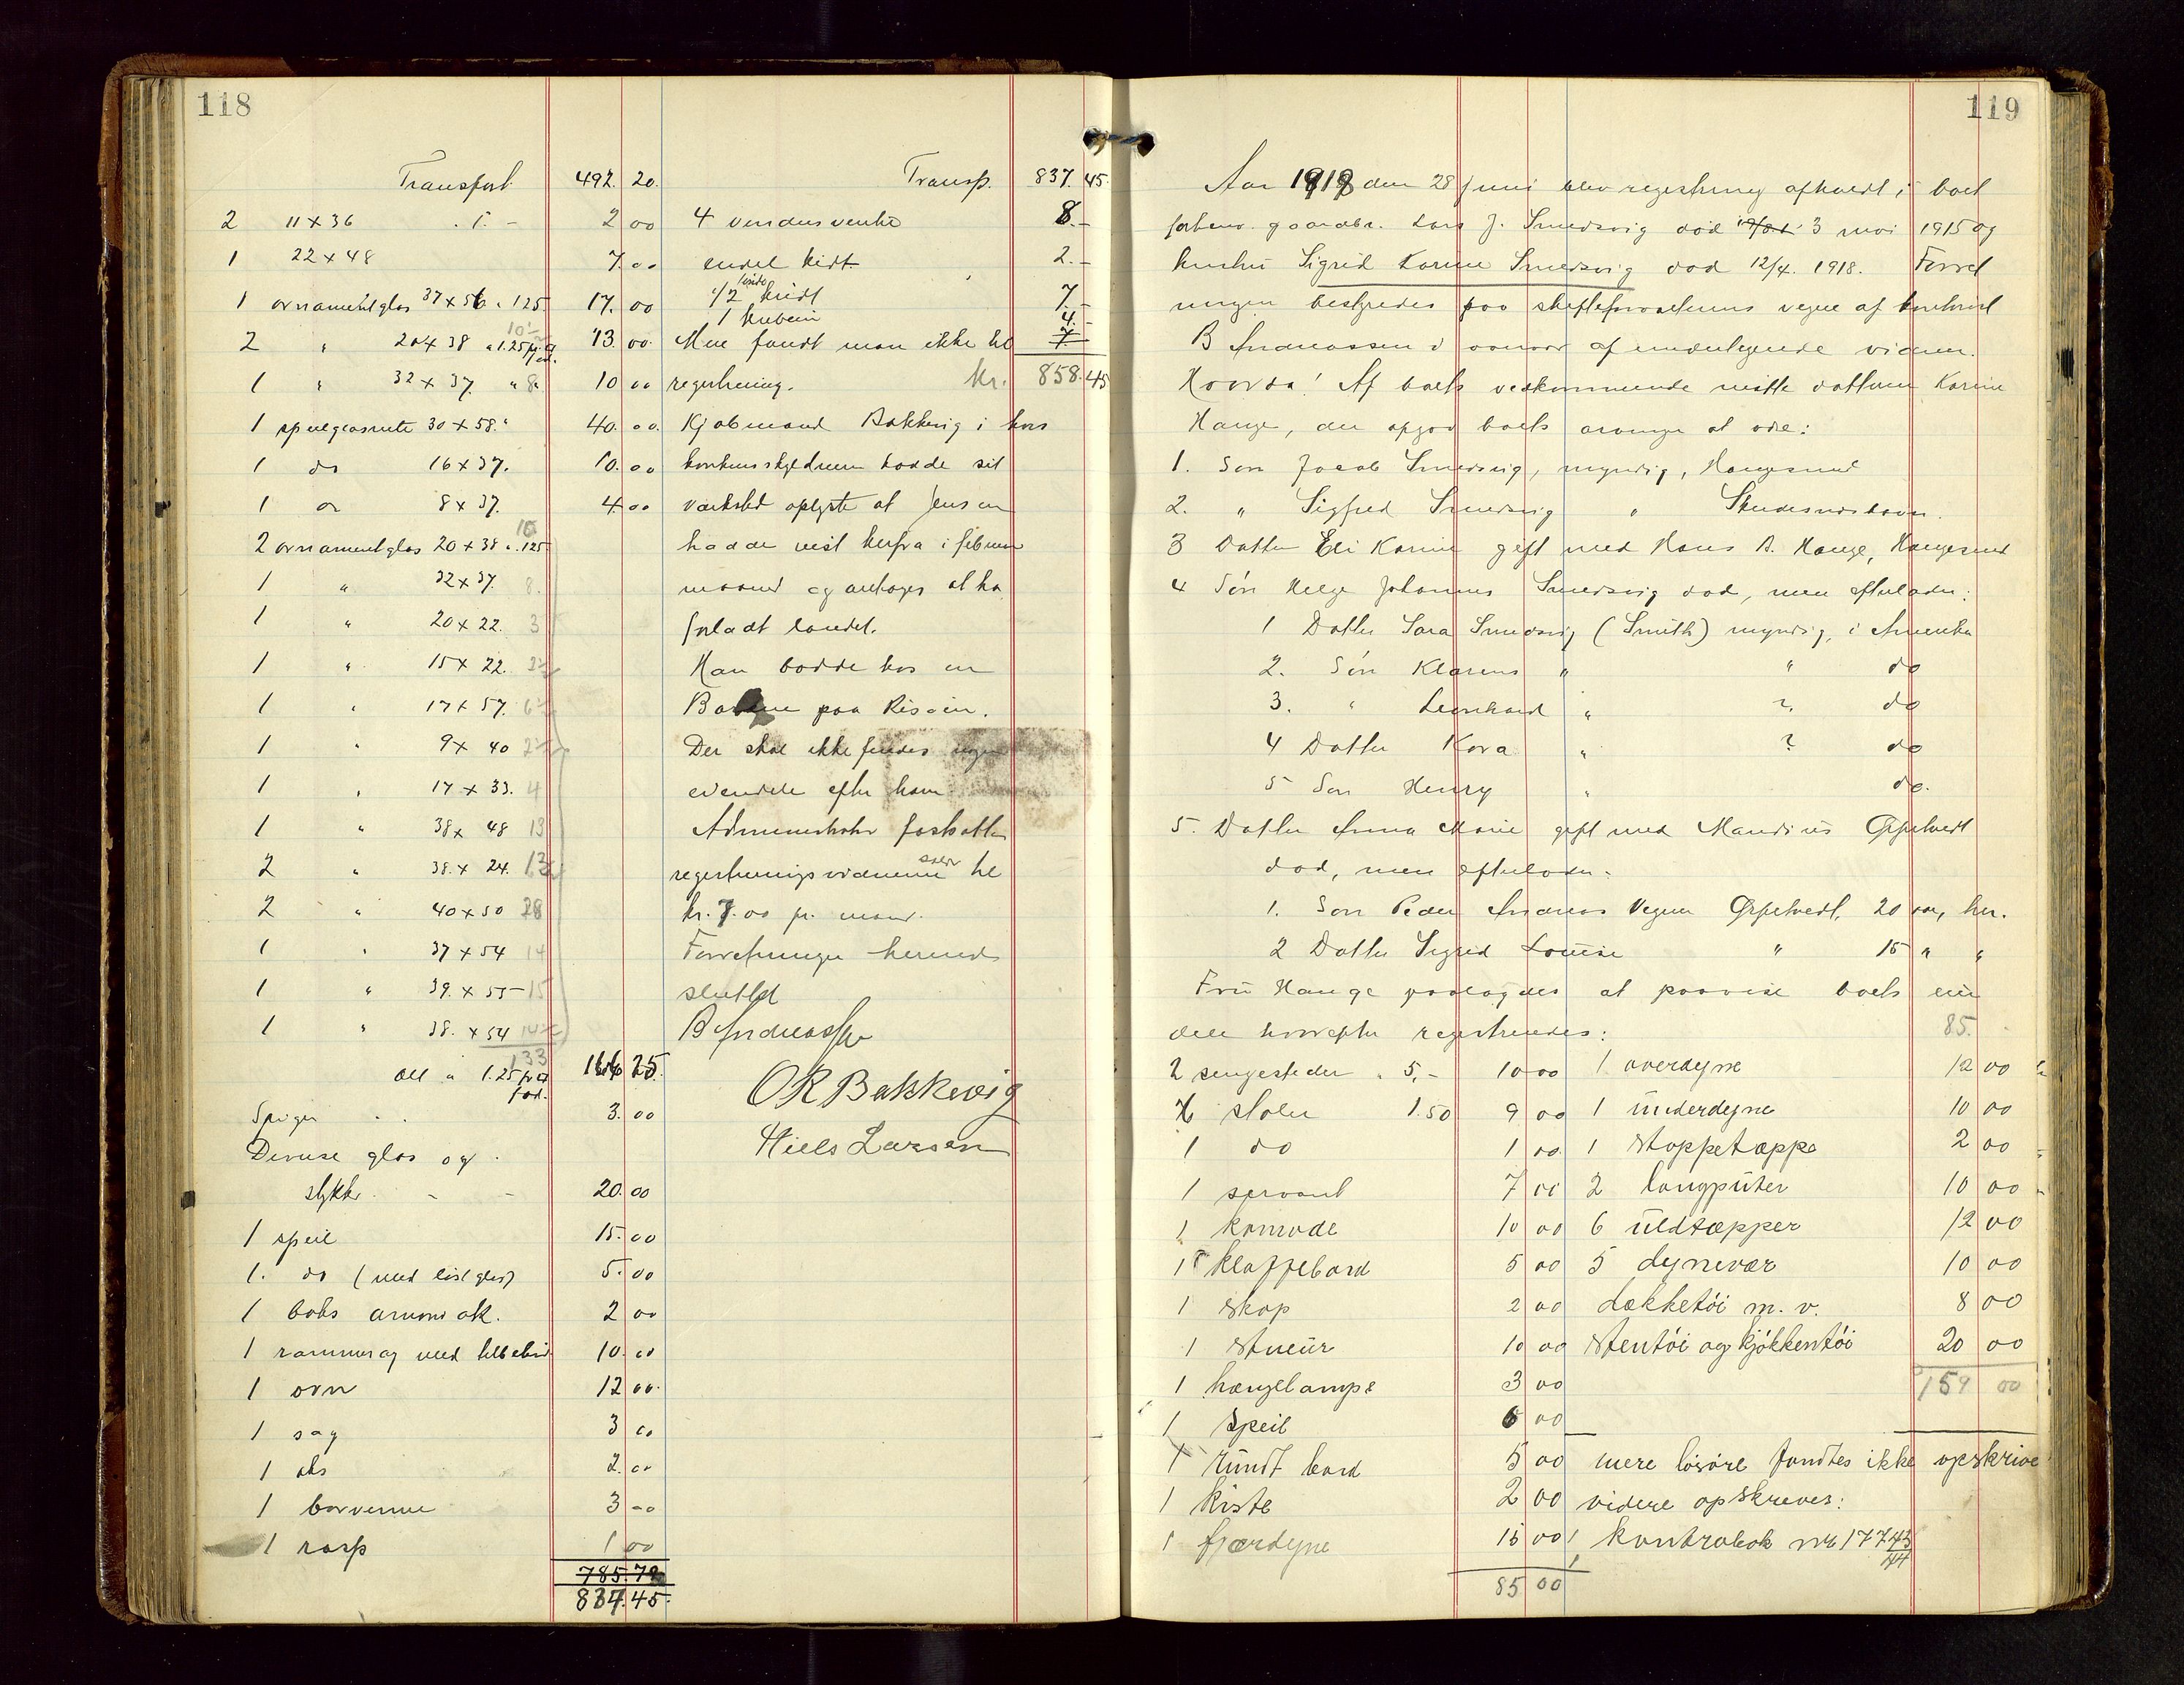 118
Transport 492. 20.
2 11 x 36 . 1. - 2 00
1 22 x 48 7. 00
1 ornamentglas 37 x 56 a 125. 17. 00
2 " 20 x 38 a 1.25 pr. 13. 00.
1 " 32 x 37. " 8. 10 00
1 speilglasrute 30 x 58. 40. 00.
1 do 16 x 37. 10. 00
1 do 8 x 37. 4 00
2 ornamentglas 20 x 38 a 125. 10
1 " 32 x 37. 8.
1 " 20 x 22. 3
1 " 15 x 22.
1 " 17 x 57. 6
1 " 9 x 40 2
1 " 17 x 33. 4
1 " 38 x 48 13
2 " 38. x 24. 13
2 " 40 x 50 28
1 " 37 x 54 14
1 " 39. x 55 15
1 " 38. x 54 14
133
alt a 1.25 pr fod. 166 25.
Spiger 3. 00
Diverse glas og
stykker. - - 20. 00
1 speil 15. 00
1. do (med löst glas) 5. 00
1 boks 2 00
1 med 10. 00
1 ovn 12 00.
1 sag 3 00
1 øks 2. 00
1 3 00
1 rasp 1 00
785. 70
837. 45.
Transp. 837. 45.
4 8. -
endel kidt 2. -
1/2 tønde kridt 7. -
1 kubein 4. -
Mere fandt man ikke til 7
registrering. kr. 858. 45
Kjøbmand Bakkevig i hvis
hadde sit
verksted oplyste at Jensen
hadde reist herfra i februar
maaned og antages at ha
forladt landet.
Han bodde hos en
paa Risøen.
Der skal ikke findes nogen
eiendele efter ham.
Administrator fastsatte
registreringsvidnerne salær til
kr. 7.00 pr. mand.
Forretningen hermed
sluttet
B Andreassen
O R Bakkevig
Niels Larsen
119
Aar 1919 den 28 juni blev registrering afholdt i boet
forhenv. gaardbr. Lars J. Smedsvig död 3 mai 1915 og
hustru Sigrid Karine Smedsvig död 12/4. 1918. Forret
ningen bestyredes paa skifteforvalterens vegne af
B Andreassen i overvær af undertegnede vidner.
Hvorda! Af boets vedkommende mötte datteren Karine
Hauge, der opgav boets arvinger at være:
1. Sön Jacob Smedsvig, myndig, Haugesund
2. " Sigfred Smedsvig " Skudesneshavn.
3 Datter Eli Karine gift med Hans A. Hauge, Haugesund
4 Sön Helge Johannes Smedsvig död, men efterlader:
1 Datter Sara Smedsvig (Smith) myndig, i Amerika
2. Sön Klarens " " do
3. " Leonhard " ? do
4 Datter Kora " ? do
5 Sön Henry " do.
5. Datter Anna Marie gift med Mandius Opfetvedt
död, men efterlader:
1. Sön Peder Andreas Vegner Opfetvedt, 20 aar, her.
2 Datter Sigrid Louise " 15 " "
Fru Hauge paalagdes at paavise boets eien
dele hvorefter registreredes: 85.
2 sengesteder a 5,- 10 00 1 overdyne 12 00
6 stoler 1.50 9 00 1 underdyne 10 00
1 do 1 00 1 stoppetæppe 2 00
1 servant 7 00 2 langputer 10 00
1 komode 10 00 6 uldtæpper 12 00
1 klaffebord 5 00 5 dynevar 10 00
1 skap 2 00 dækketöi m. v. 8 00
1 stueur 10 00 stentöi og kjökkentöi 20 00
1 hængelampe 3 00 159 00
1 speil 6 00
1 rundt bord 5 00 mere lösöre fandtes ikke opskrive
1 kiste 2 00 videre opskreves:
1 fjærdyne 15 00 1 kontrabok nr. 17743/44
85 00